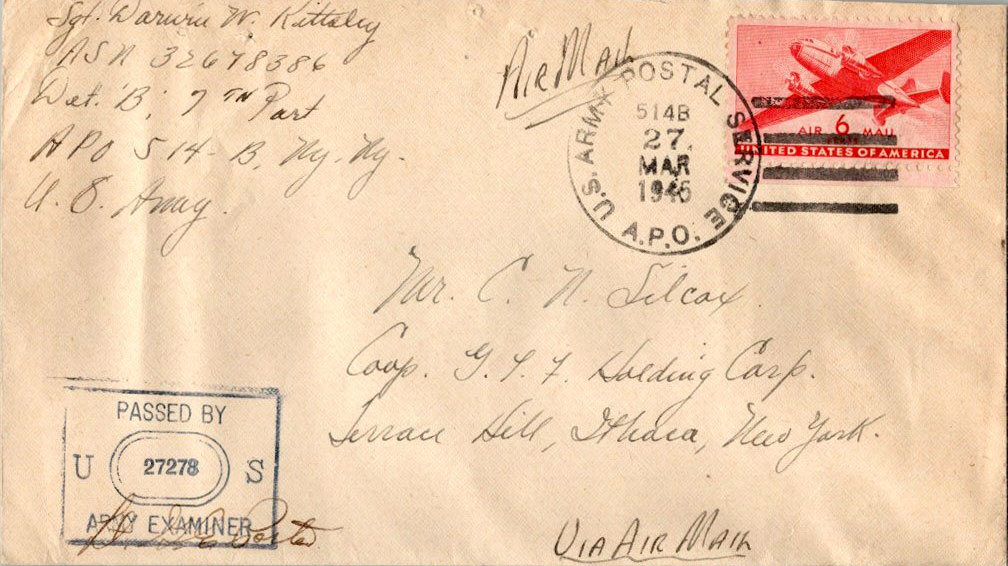 Sgt. Darwin W. Kittsley
ASN 32678386
Det. 'B', 7TH Port
APO 514-B, Ny. Ny.
U. S. Army.
Air Mail
U.S. ARMY POSTAL SERVICE
514B
27
MAR
1945
A.P.O.
AIR 6¢ MAIL
UNITED STATES OF AMERICA
Mr. C. N. Silcox.
Coop. G. L. F. Holding Corp.
Terrace Hill, Ithaca, New York.
PASSED BY
U 27278 S
ARMY EXAMINER
VIA AIR MAIL